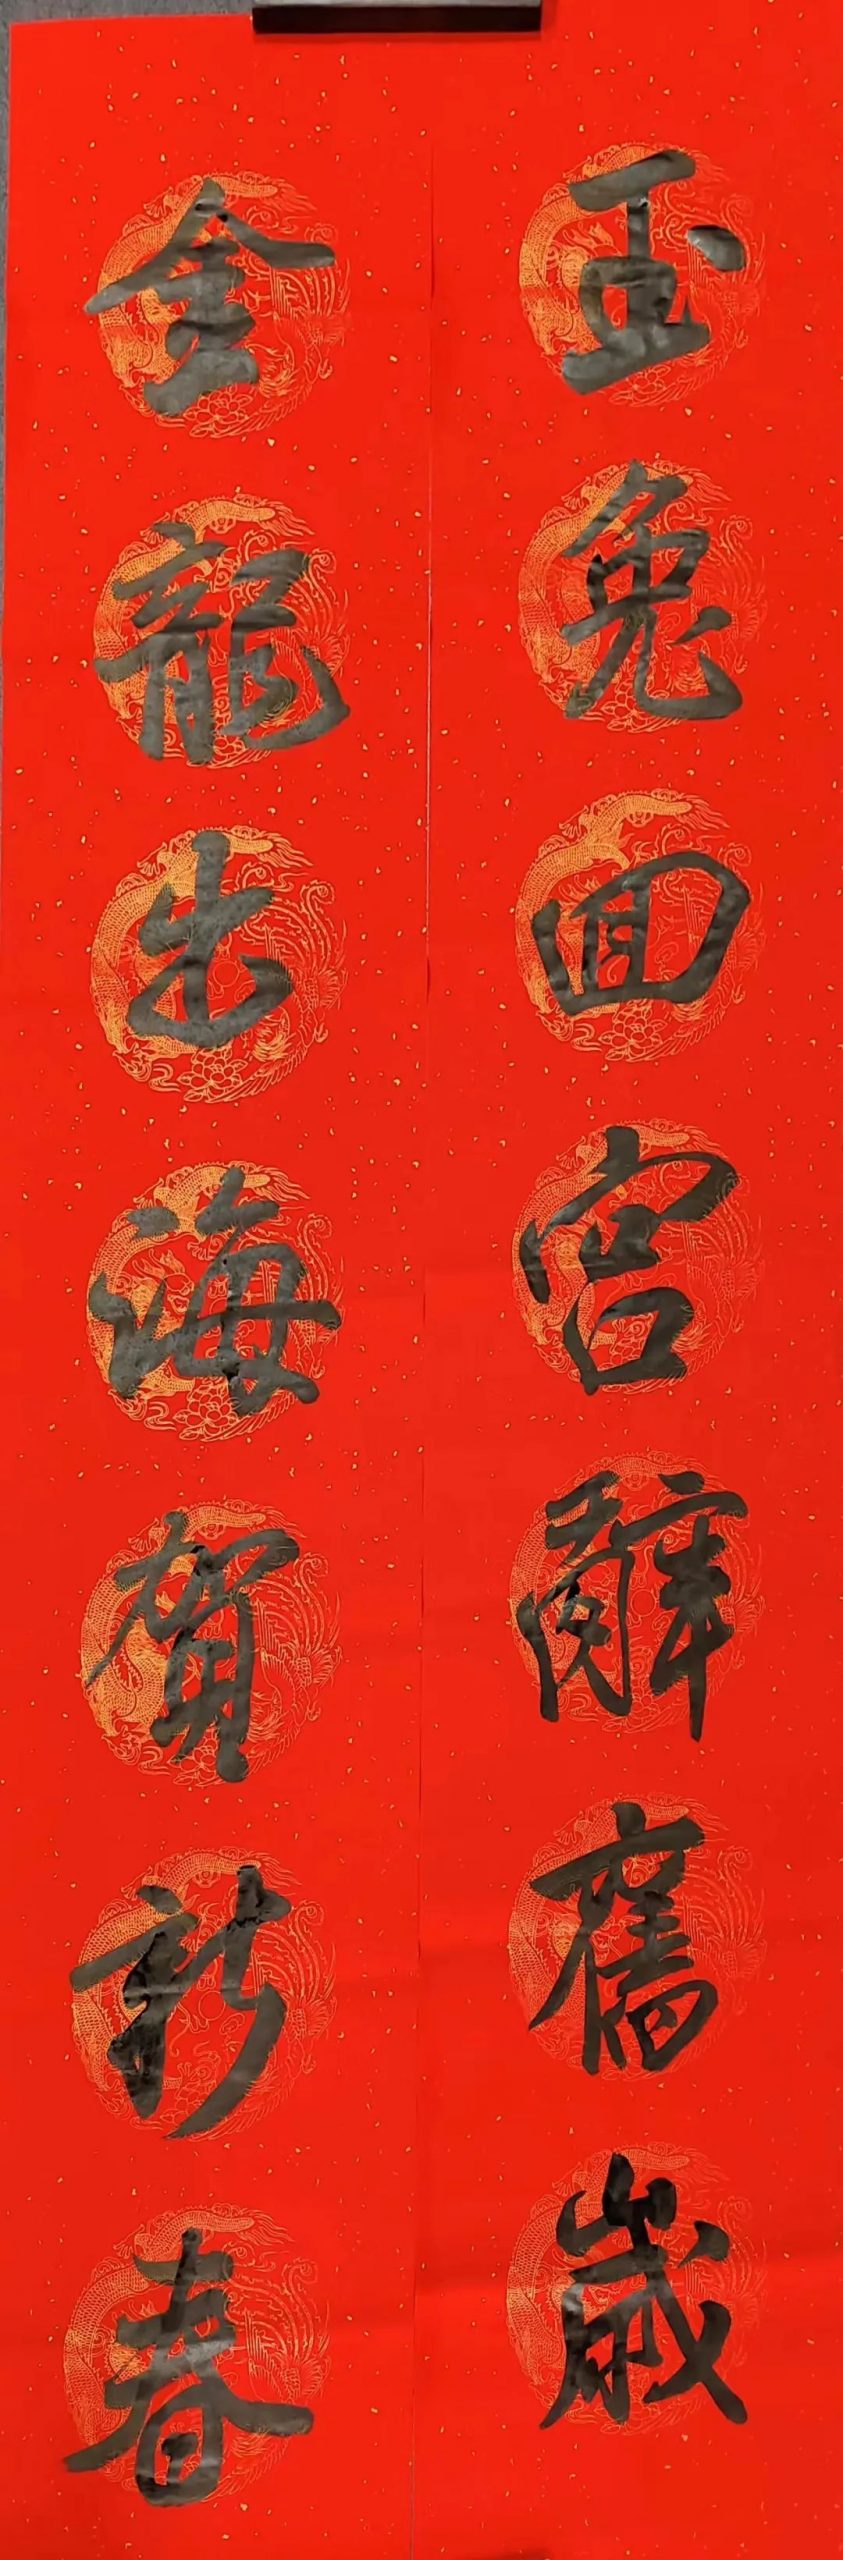 玉兔回宫辭舊歲
金龍出海賀新春